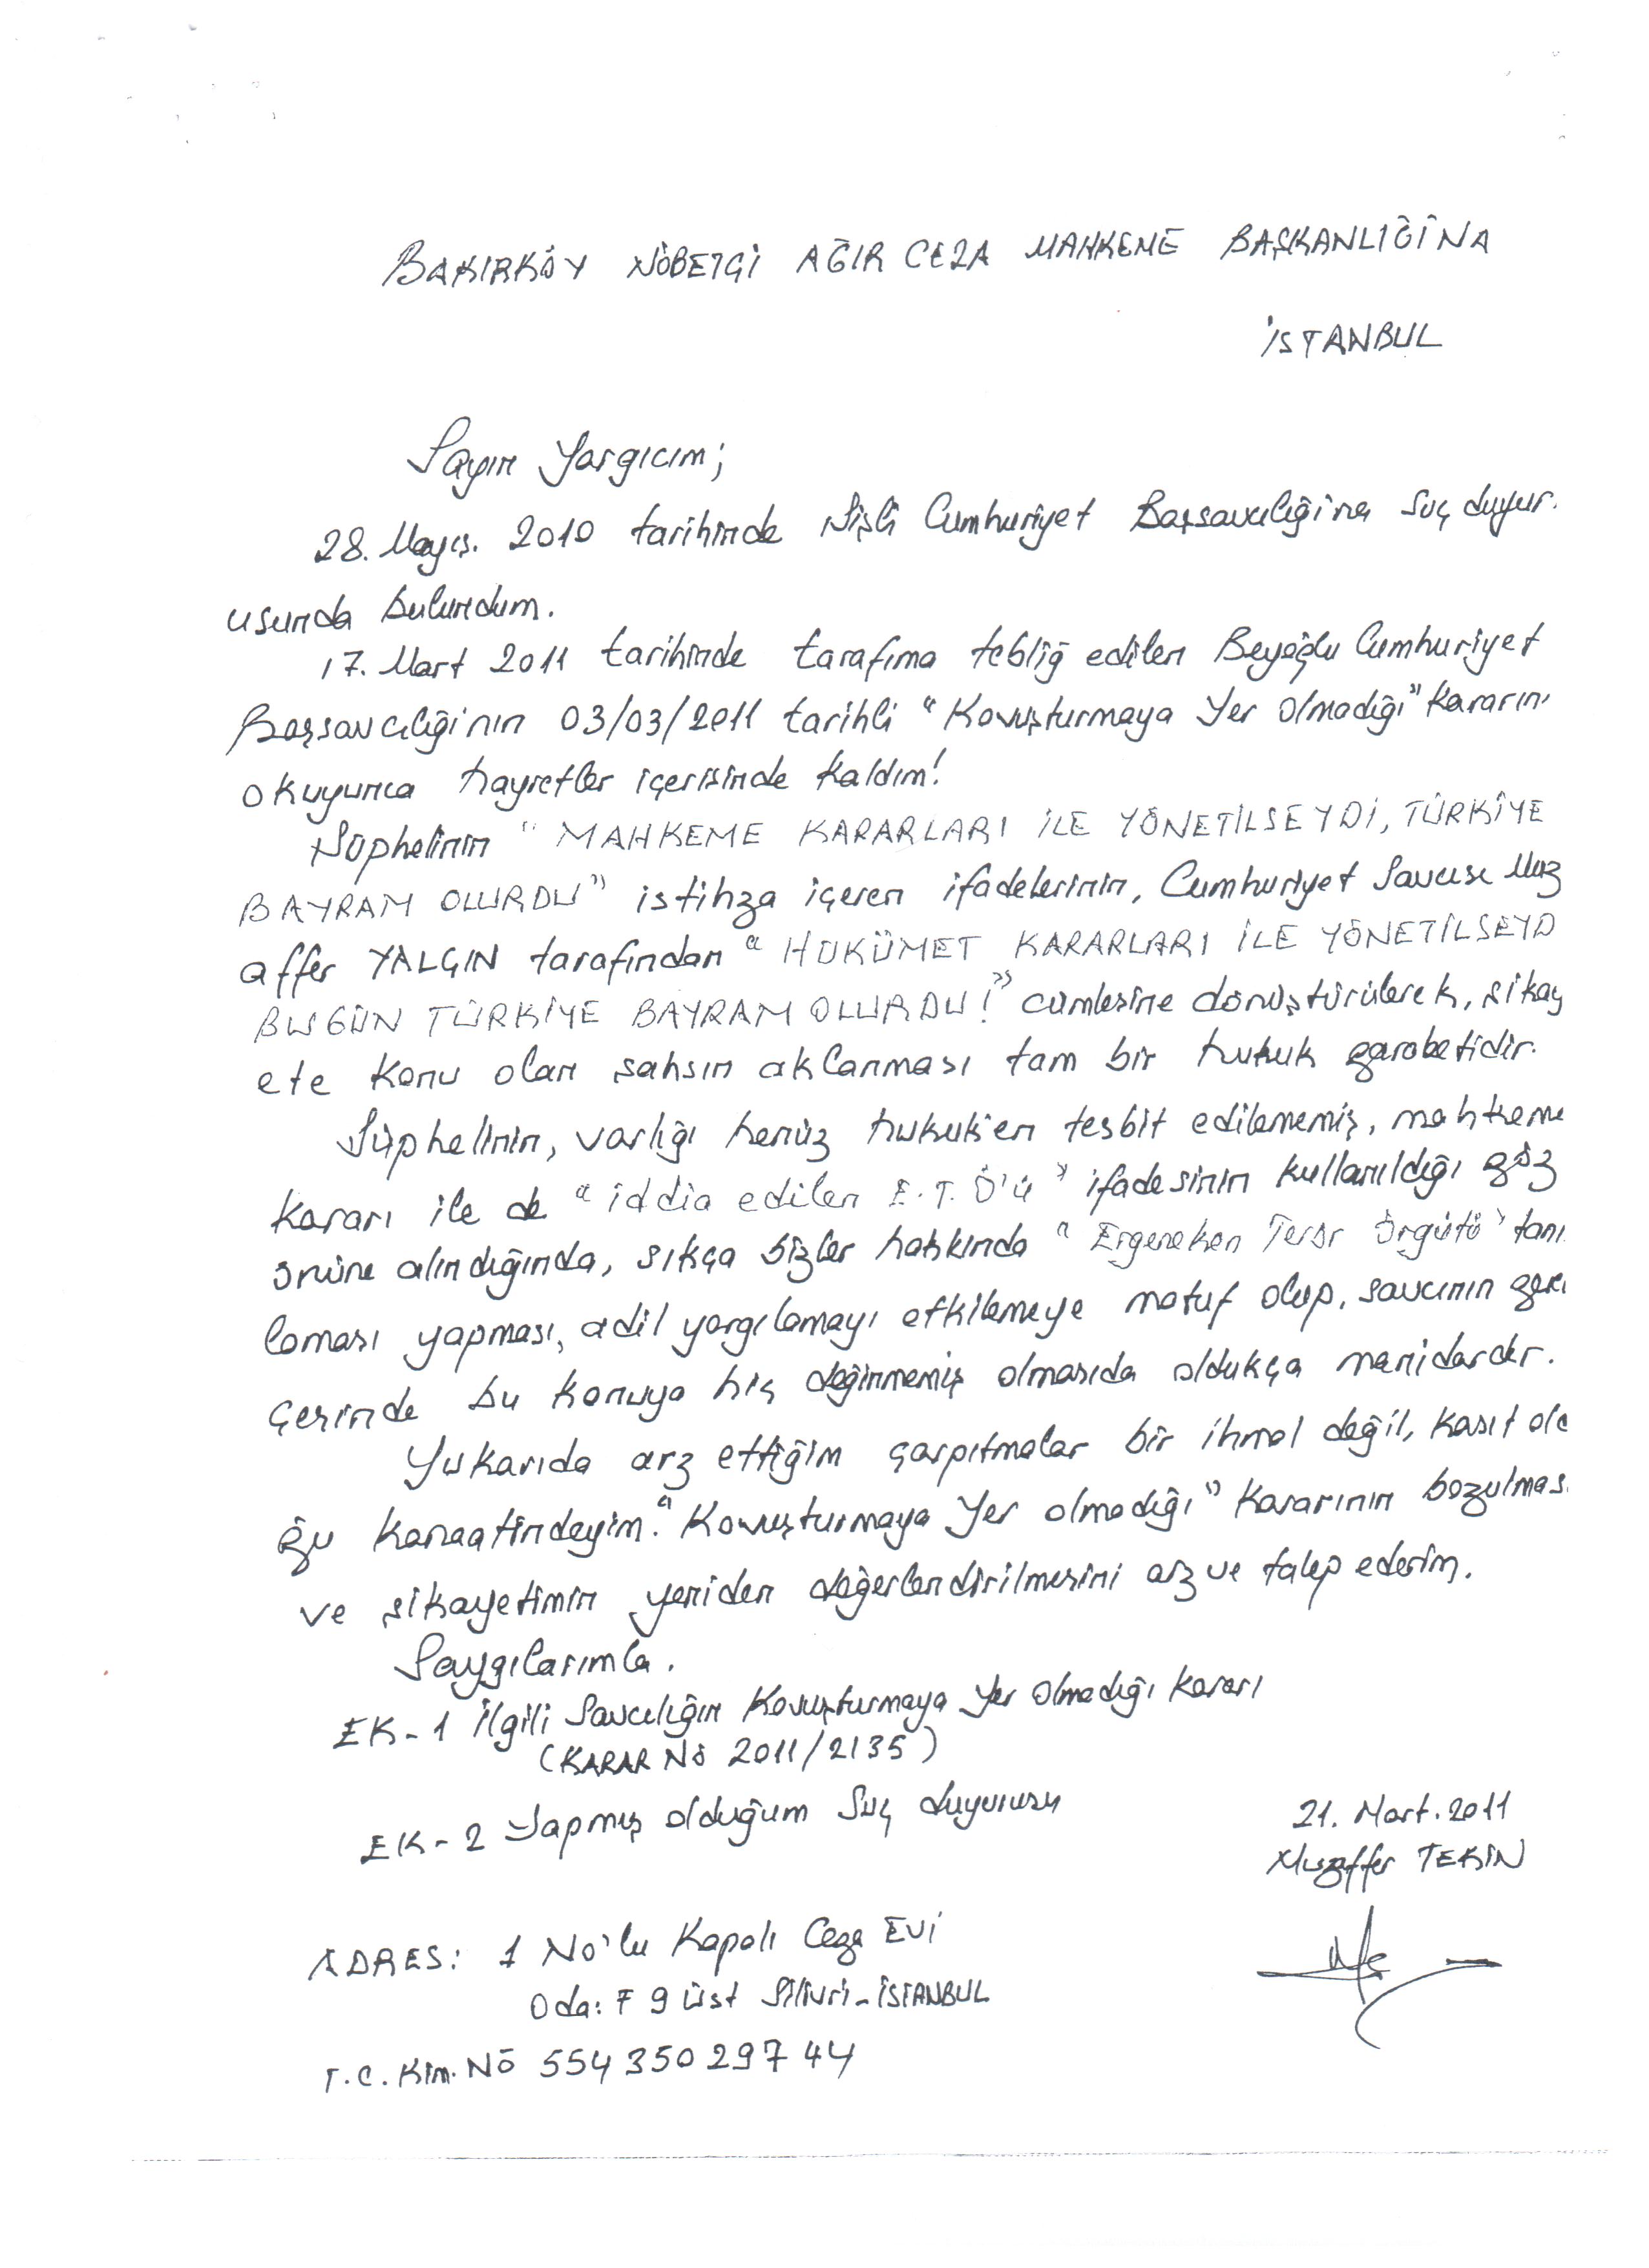 BAKIRKÖY NÖBETÇİ AĞIR CEZA MAHKEME BAŞKANLIĞİNA
İSTANBUL
Sayın Yargıcım;
28. Mayıs. 2010 tarihinde Şişli Cumhuriyet Başsavcılığına Suç duyur.
usunda bulundum.
17. Mart 2011 tarihinde tarafıma tebliğ edilen Beyoğlu Cumhuriyet
Başsavcılığinın 03/03/2011 tarihli "Kovuşturmaya Yer Olmadığı" Kararını
okuyunca hayretler içerisinde kaldım!
Şüphelinin "MAHKEME KARARLARI İLE YÖNETİLSEYDİ, TÜRKİYE
BAYRAM OLURDU" istihza içeren ifadelerinin, Cumhuriyet Savcısı Muz
affer YALÇIN tarafından "HÜKÜMET KARARLARI İLE YÖNETİLSEYD
BUGÜN TÜRKİYE BAYRAM OLURDU!" cümlesine dönüştürülerek, şikay
ete konu olan şahsın aklanması tam bir hukuk garabetidir.
Şüphelinin, varlığı henüz hukuk'en tesbit edilememiş, mahkeme
kararı ile de "iddia edilen E.T.Ö'ü" ifadesinin kullanıldığı göz
önüne alındığında, sıkça bizler hakkında "Ergenekon Terör Örgütü" tanı
laması yapması, adil yargılamayı etkilemeye matuf olup, savcının gerek
çesinde bu konuya hiç değinmemiş olmasıda oldukça manidardır.
Yukarıda arz ettiğim çarpıtmalar bir ihmal değil, kasıt oldu
ğu kanaatindeyim. "Kovuşturmaya Yer olmadığı" Kararının bozulması
ve şikayetimin yeniden değerlendirilmesini arz ve talep ederim.
Saygılarımla.
EK-1 İlgili Savcılığın Kovuşturmaya Yer Olmadığı Kararı
(KARAR NO 2011/2135)
EK-2 Yapmış olduğum Suç duyurusu
21. Mart. 2011
Muzaffer TEKİN
ADRES: 1 No'lu Kapalı Ceza Evi
Oda: F 9 üst Silivri-İSTANBUL
T.C. Kim. NO 554 350 297 44